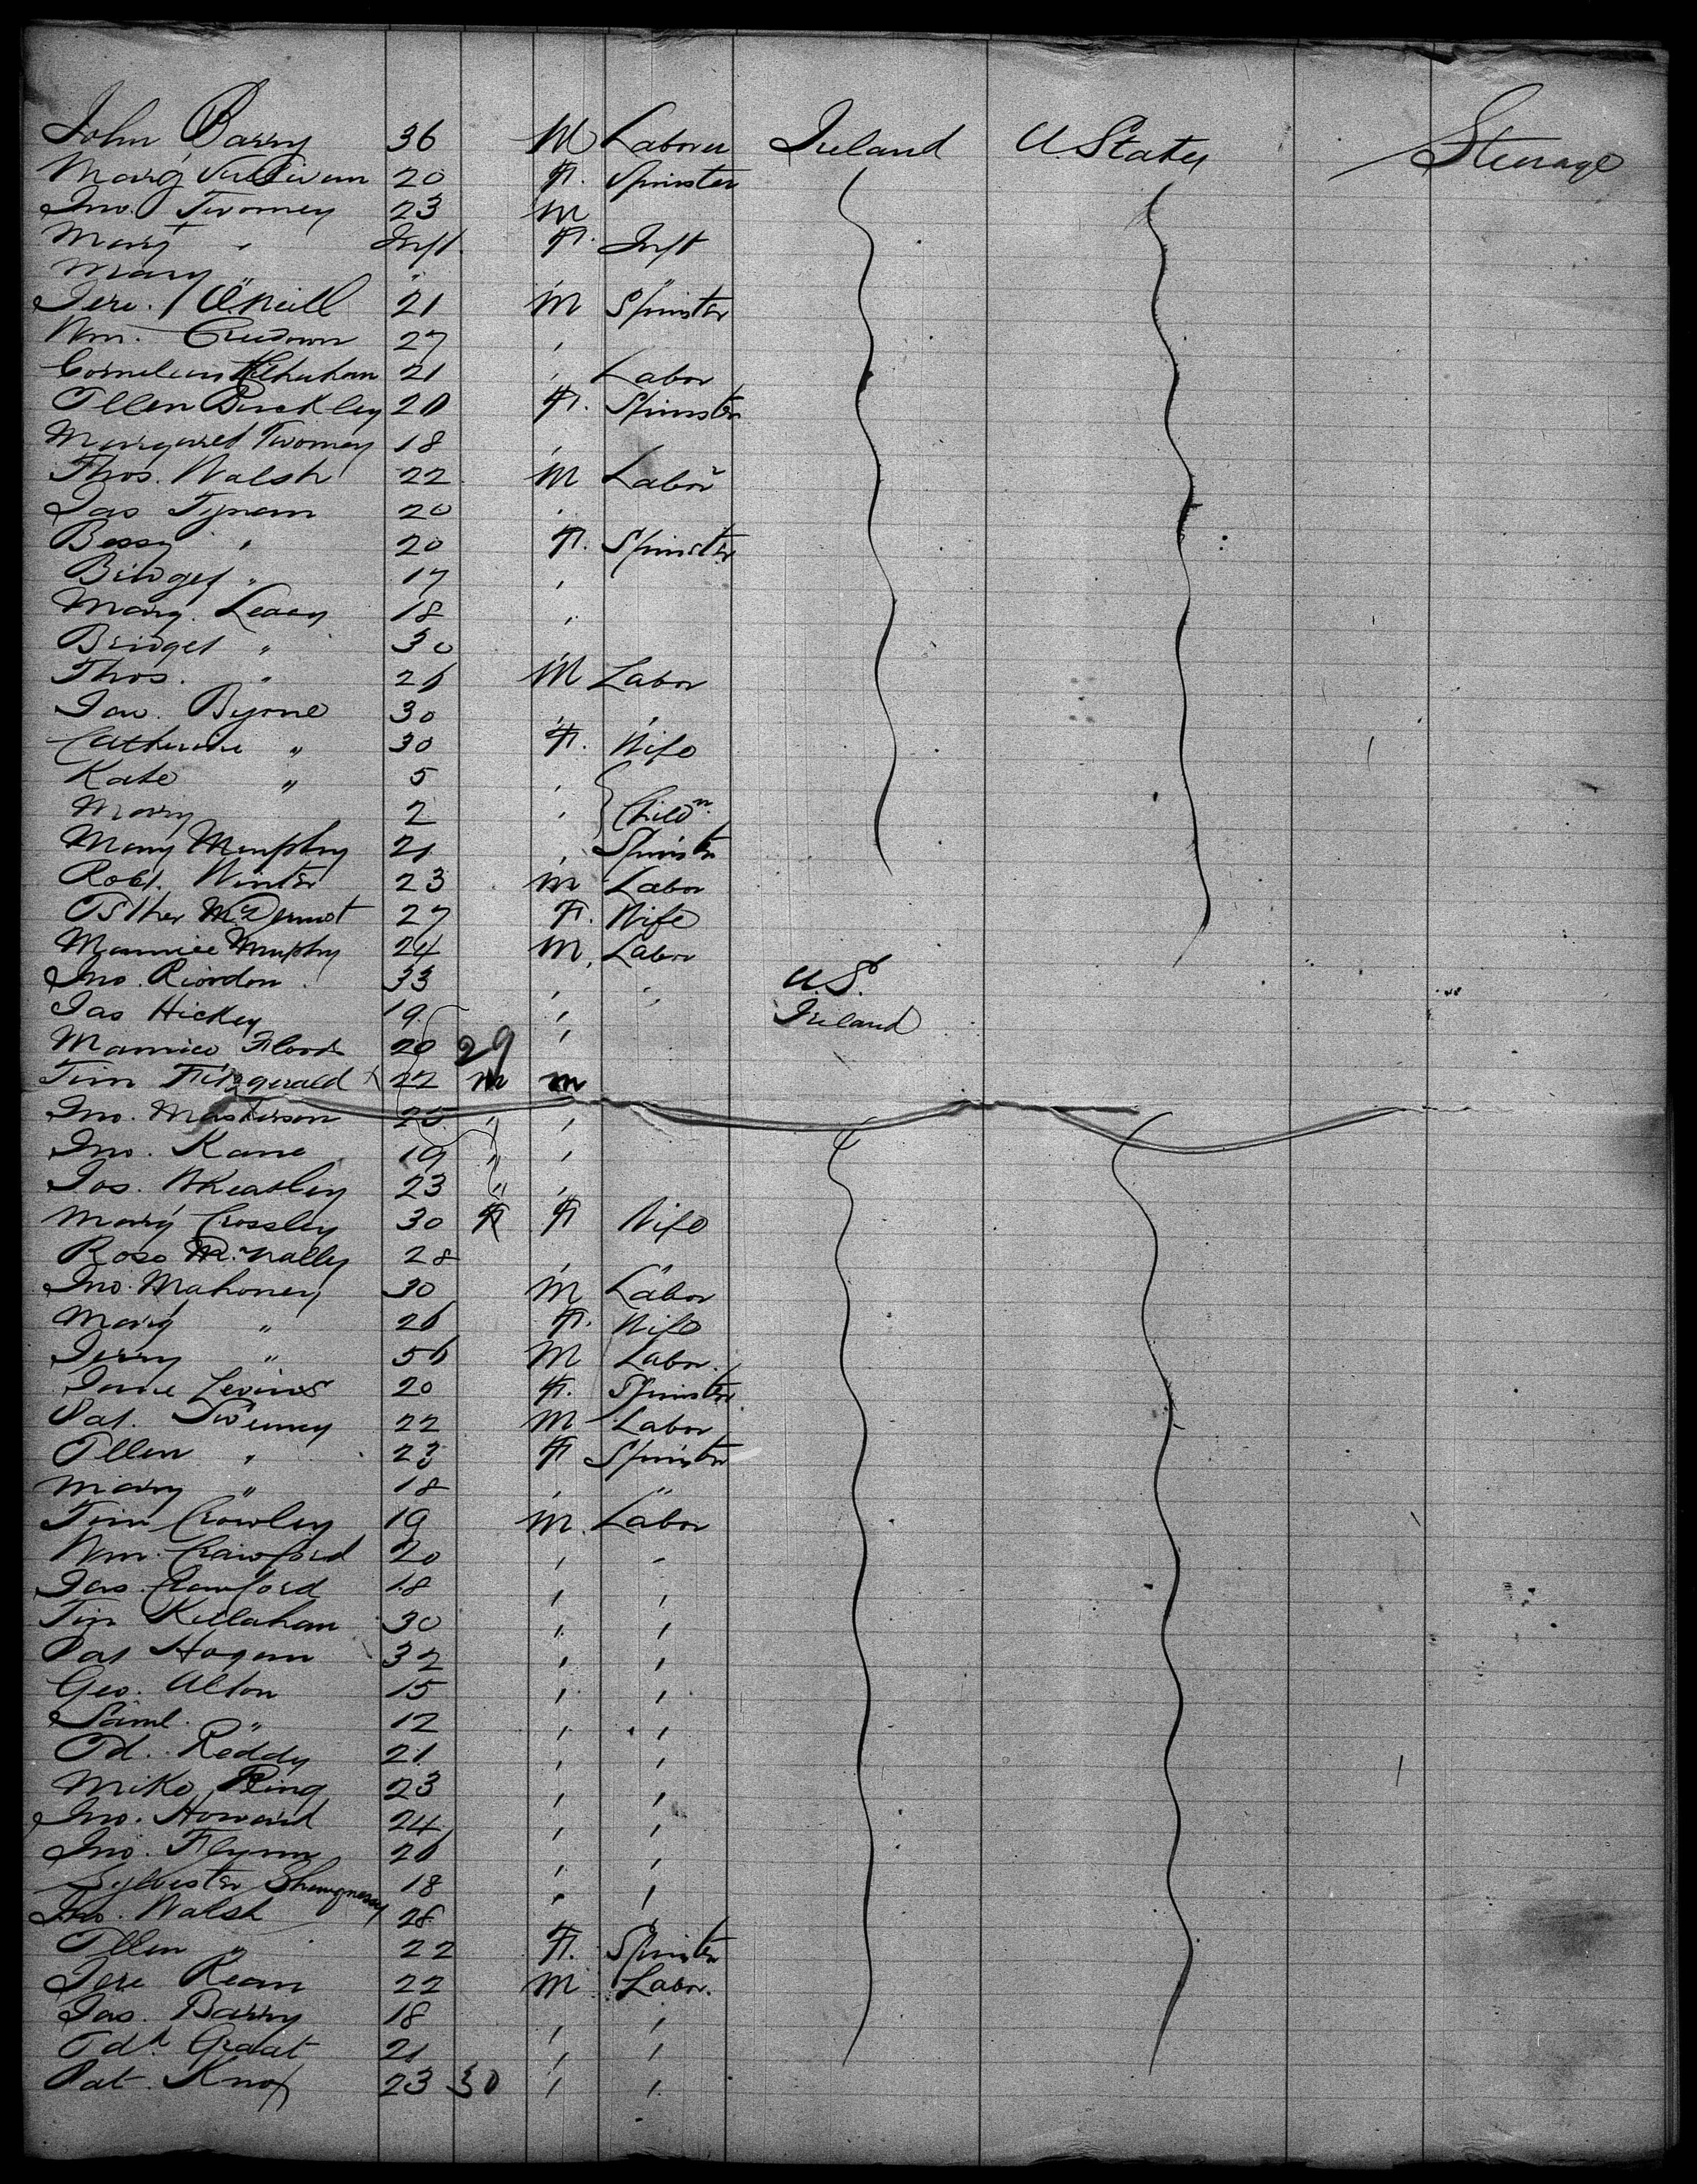 John Barry 36 M Laborer Ireland U. States Steerage
Mary Sullivan 20 F. Spinster
Jno. Twomey 23 M
Mary " Inft. F. Inft
Mary " " "
Jere. O'Neill 21 M Spinster
Wm. 27 "
Cornelius 21 " Labor
Ellen Buckley 20 F. Spinster
Margaret Twomey 18 "
Thos. Walsh 22 M Labor
Jas Tynan 20 "
Bessy " 20 F. Spinster
Bridget " 17 "
Mary Leary 18 "
Bridget " 30
Thos. " 26 M Labor
Jas. Byrne 30 " "
Catherine " 30 F. Wife
Kate " 5 "
Mary 2 " Childn
Mary Murphy 21 " Spinster
Robt. Winter 23 M Labor
Esther McDermot 27 F. Wife
Maurice Murphy 24 M, Labor
Jno. Riordon 33 " " U.S.
Jas Hickey 19 " Ireland
Maurice Flood 20 29 "
Tim Fitzgerald 22 M M
Jno. Masterson 25 " "
Jno. Kane 19 " "
Jos. 23 " "
Mary Crossley 30 F F Wife
Rose McNally 28 " "
Jno. Mahoney 30 M Labor
Mary " 26 F. Wife
Jerry " 56 M Labor.
Jane Levins 20 F. Spinster
Pat. Sweeney 22 M Labor
Ellen " 23 F Spinster
Mary " 18 " "
Tim Crowley 19 M. Labor
Wm. Crawford 20 " "
Jas. Crawford 18 " "
Tim Killahan 30 " "
Pat Hogan 32 " "
Geo. Alton 15 " "
Saml. " 12 " "
Ed. Reddy 21 " "
Mike Ring 23 " "
Jno. Howard 24 " "
Jno. Flynn 26 " "
Sylvester Shaugnessy 18 " "
Jno. Walsh 28 " "
Ellen " 22 F. Spinster
Jere Ream 22 M Labor.
Jas. Barry 18 " "
Edd. Graat 21 " "
Pat. Knox 23 30 " "